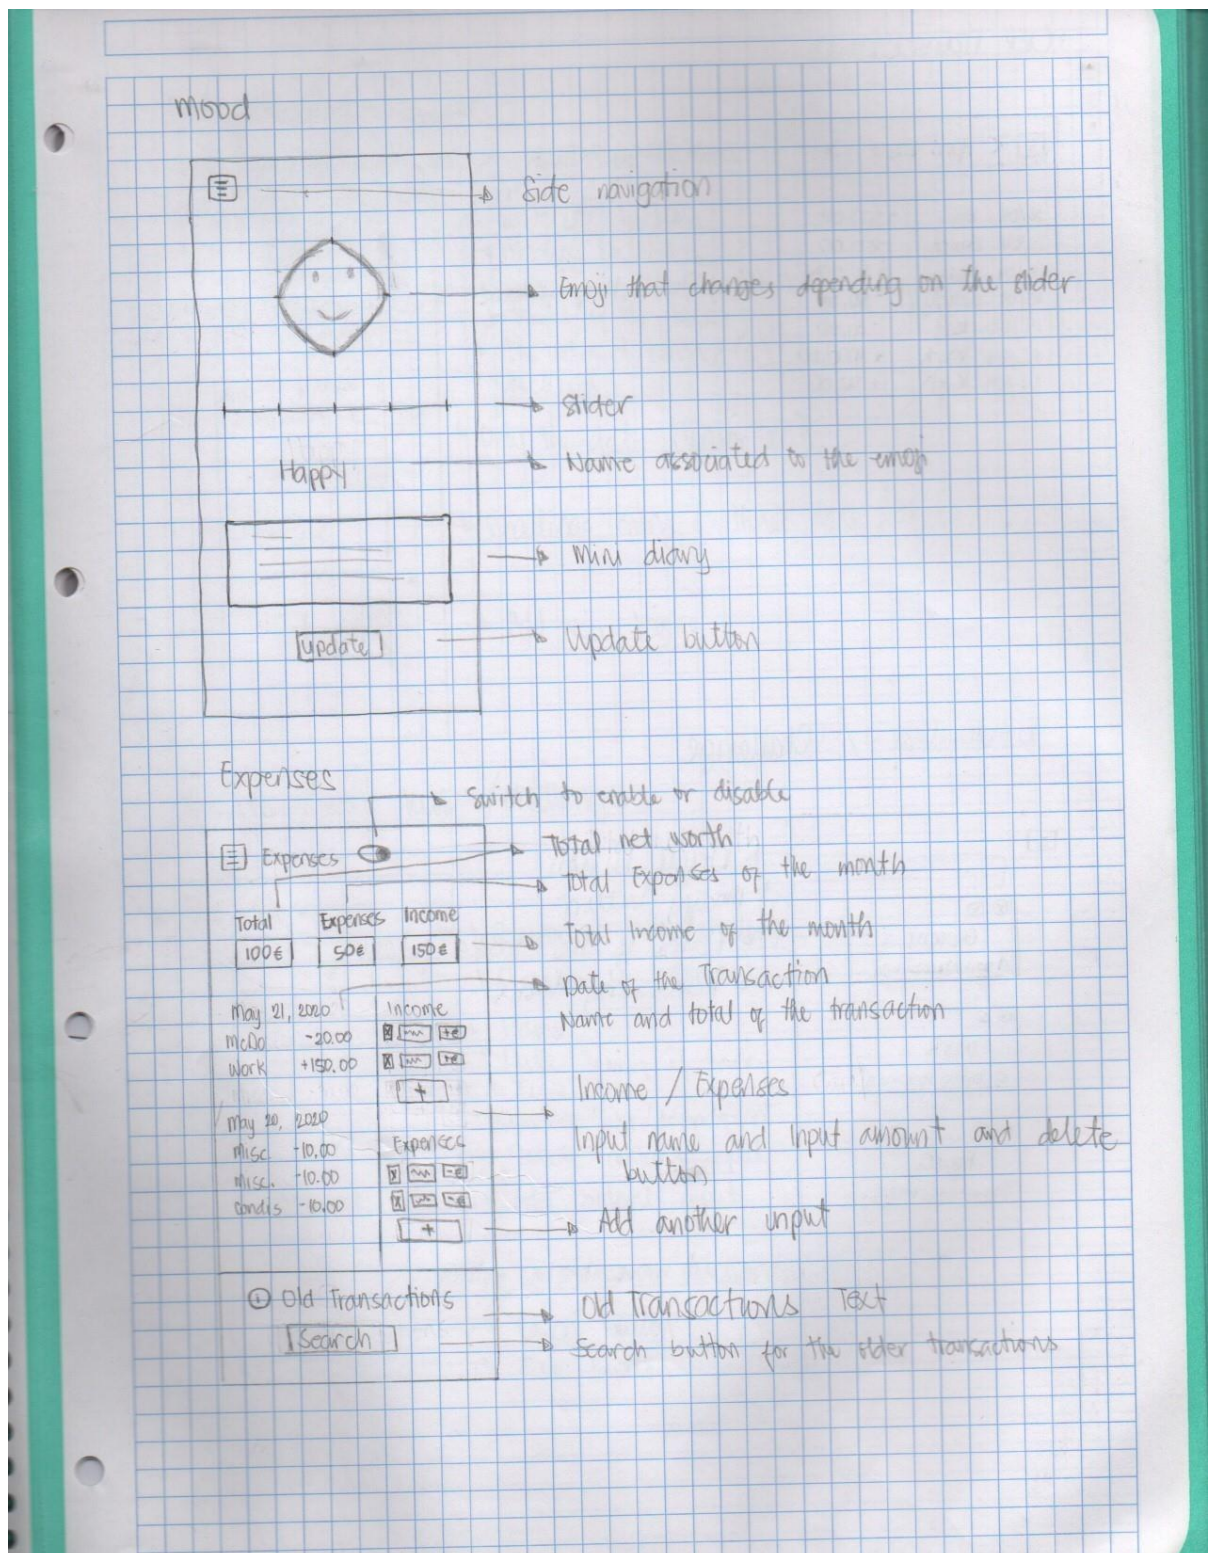 mood
Side navigation
Emoji that changes depending on the slider
slider
Happy
Name associated to the emoji
Mini diary
update
Update button
Expenses
Switch to enable or disable
Expenses
Total net worth
Total Expenses of the month
Total Expenses Income
100€ 50€ 150€
Total Income of the month
Date of the Transaction
May 21, 2020 Income
Name and total of the transaction
McDo -20.00
Work +150.00
+
Income / Expenses
May 20, 2020
Misc -10.00 Expenses
Input name and input amount and delete
button
Misc. -10.00
Condis -10.00
+
Add another input
Old Transactions
Old Transactions Text
Search
Search button for the older transactions